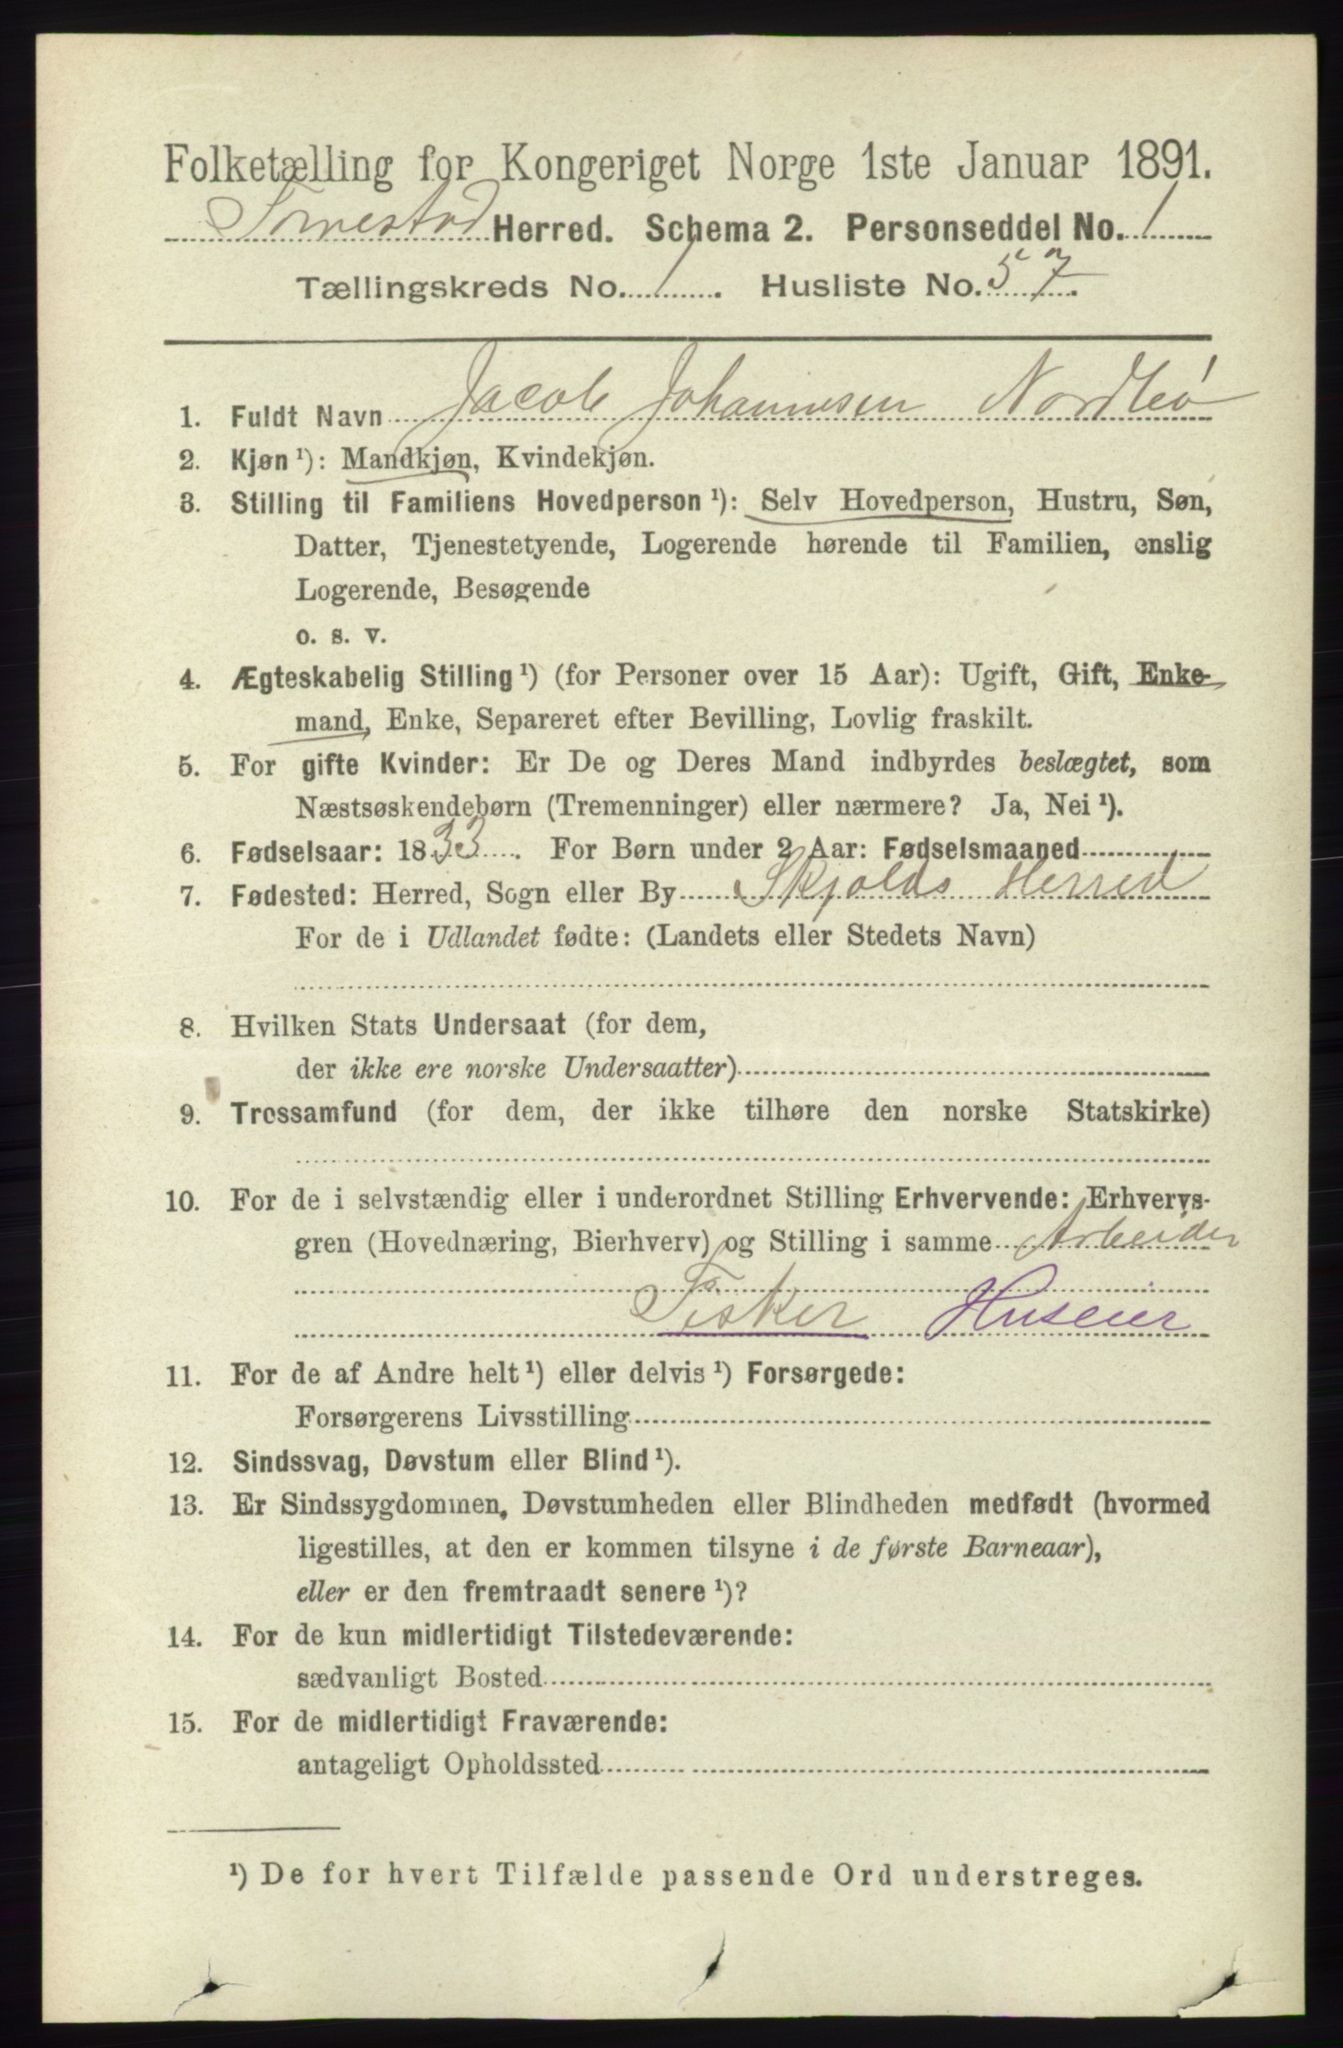 Folketælling for Kongeriget Norge 1ste Januar 1891.
Torvestad Herred. Schema 2. Personseddel No. 1
Tællingskreds No. 1. Husliste No. 57.
1. Fuldt Navn Jacob Johannesen Nordbø
2. Kjøn ¹): Mandkjøn, Kvindekjøn.
3. Stilling til Familiens Hovedperson ¹): Selv Hovedperson, Hustru, Søn,
Datter, Tjenestetyende, Logerende hørende til Familien, enslig
Logerende, Besøgende
o. s. v.
4. Ægteskabelig Stilling ¹) (for Personer over 15 Aar): Ugift, Gift, Enke-
mand, Enke, Separeret efter Bevilling, Lovlig fraskilt.
5. For gifte Kvinder: Er De og Deres Mand indbyrdes beslægtet, som
Næstsøskendebørn (Tremenninger) eller nærmere? Ja, Nei ¹).
6. Fødselsaar: 1833. For Børn under 2 Aar: Fødselsmaaned
7. Fødested: Herred, Sogn eller By Skjolds Herred
For de i Udlandet fødte: (Landets eller Stedets Navn)
8. Hvilken Stats Undersaat (for dem,
der ikke ere norske Undersaatter)
9. Trossamfund (for dem, der ikke tilhøre den norske Statskirke)
10. For de i selvstændig eller i underordnet Stilling Erhvervende: Erhvervs-
gren (Hovednæring, Bierhverv) og Stilling i samme Arbeider
Fisker Huseier
11. For de af Andre helt ¹) eller delvis ¹) Forsørgede:
Forsørgerens Livsstilling
12. Sindssvag, Døvstum eller Blind ¹).
13. Er Sindssygdommen, Døvstumheden eller Blindheden medfødt (hvormed
ligestilles, at den er kommen tilsyne i de første Barneaar),
eller er den fremtraadt senere ¹)?
14. For de kun midlertidigt Tilstedeværende:
sædvanligt Bosted
15. For de midlertidigt Fraværende:
antageligt Opholdssted
¹) De for hvert Tilfælde passende Ord understreges.